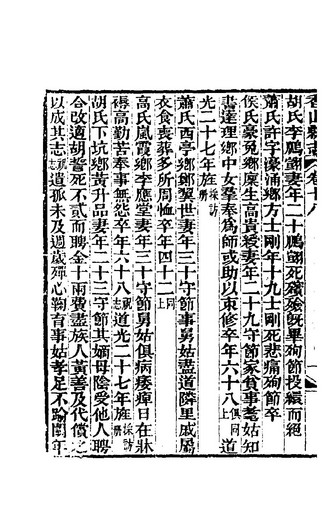 香山縣志 卷十八
胡氏李鵬翾妻年二十鵬翾死殯殮旣畢殉節投繯而絕
蕭氏許字濠涌鄉方士剛年十九士剛死悲痛殉節卒
侯氏豪兔鄉廩生高貴稜妻年二十九守節家貧事耄姑知
書達理鄉中女羣奉為師或助以束修卒年六十八俱同上道
光二十七年旌採訪冊
蕭氏西亭鄉鄭聖世妻年三十守節事舅姑盡道隣里戚屬
衣食喪葬多所周恤卒年四十二同上
高氏嵐霞鄉李應堂妻年三十守節舅姑俱病痿痺日在牀
褥高勤苦奉事無怨卒年六十八祝志道光二十七年旌採訪冊
胡氏下坑鄉黃升品妻年二十三守節其嫡母陰受他人聘
合改適胡誓死不貳而聘金十兩費盡族人黃善及代償之
以成其志祝志遺孤未及週歲殫心鞠育事姑孝足不踰閫年